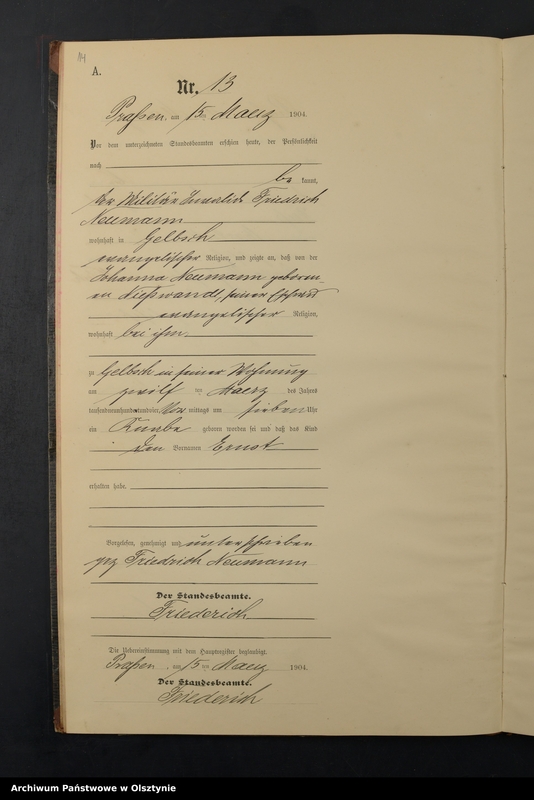 14
A.
Nr. 13
Praßen am 15ten Maerz 1904.
Vor dem unterzeichneten Standesbeamten erschien heute, der Persönlichkeit
nach
be kannt,
der Militär Invalide Friedrich
Neumann
wohnhaft in Gelbsch
evangelischer Religion, und zeigte an, daß von der
Johanna Neumann geboren-
en Nießwandt, seiner Ehefrau
evangelischer Religion,
wohnhaft bei ihm
zu Gelbsch in seiner Wohnung
am zwölf ten Maerz des Jahres
tausendneunhundertundvier Vor mittags um sieben Uhr
ein Knabe geboren worden sei und daß das Kind
den Vornamen Ernst
erhalten habe.
Vorgelesen, genehmigt und unterschrieben
gez Friedrich Neumann
Der Standesbeamte.
Friederich
Die Uebereinstimmung mit dem Hauptregister beglaubigt.
Praßen, am 15ten Maerz 1904.
Der Standesbeamte.
Friederich
Archiwum Państwowe w Olsztynie